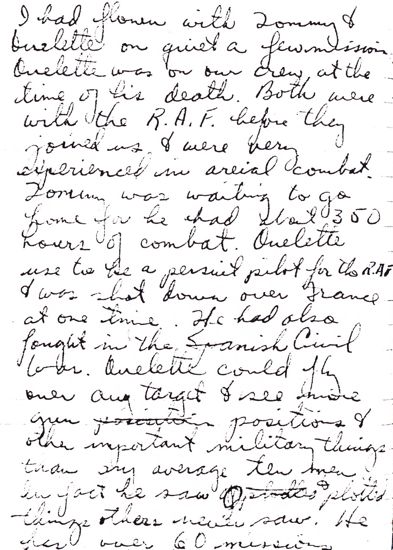 I had flown with Tommy &
Ouelette on quiet a few mission
Ouelette was on our crew at the
time of his death. Both were
with the R.A.F. before they
joined us & were very
experienced in areial combat.
Tommy was waiting to go
home for he had about 350
hours of combat. Ouelette
use to be a persuit pilot for the R.AF
& was shot down over France
at one time. He had also
fought in the Spanish Civil
War. Ouelette could fly
over any target & see more
gun positions &
other important military things
than any average ten men
in fact he saw & plotted
things others never saw. He
has over 60 missions